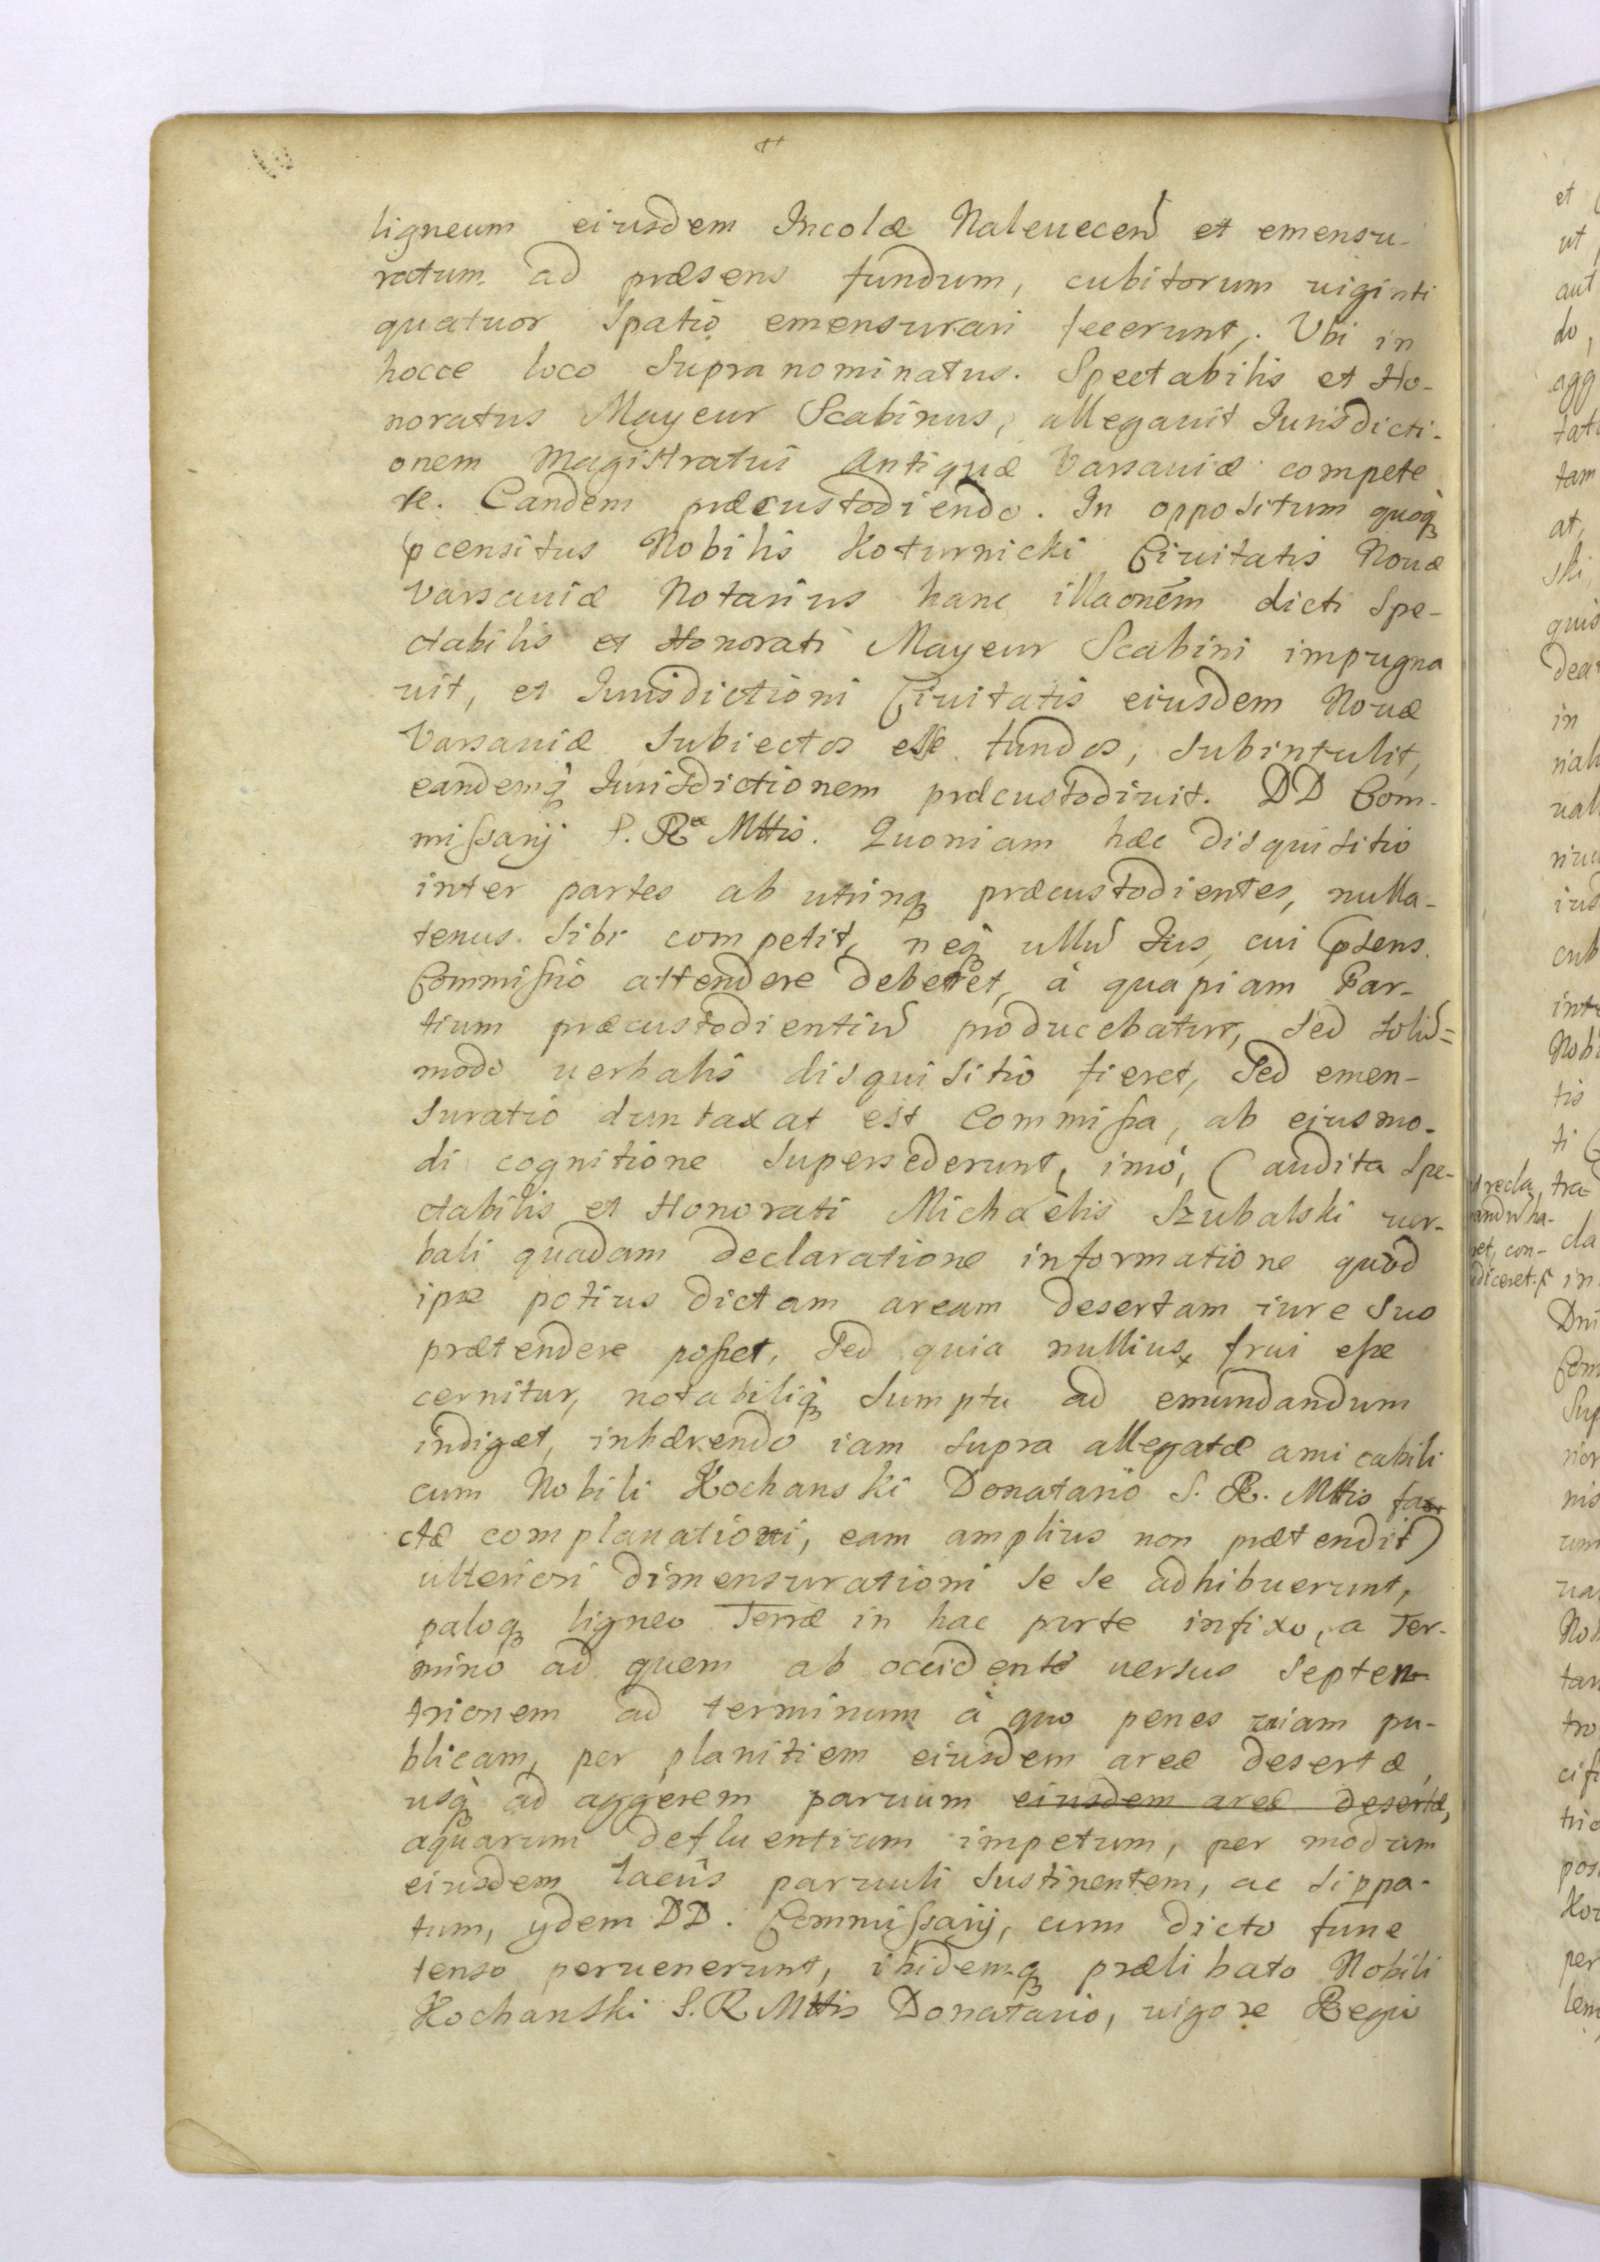 ligneum eiusdem Incolæ Naleuecen̄ et emensu-
ratum ad præsens fundum, cubitorum uiginti
quatuor Spatio emensurari fecerunt. Vbi in
hocce loco Supra nominatus. Spectabilis et Ho-
noratus Mayeur Scabinus, allegauit Iurisdicti-
onem Magistratui Antiquæ Varsauiæ compete
re. Eandem præcustodiendo. In oppositum quoq̀
pcensitus Nobilis Koturnicki Ciuitatis Nouæ
Varsauiæ Notarius hanc illaonēm dicti Spe-
ctabilis et Honorati Mayeur Scabini impugna
uit, et Iurisdictioni Ciuitatis eiusdem Nouæ
Varsauiæ Subiectos esse fundos, Subintulit,
eandemq̀ Iurisdictionem præcustodiuit. DD Com-
missarij S. Rᵃ Mttis. Quoniam hæc disquisitio
inter partes ab utrinq præcustodientes, nulla-
tenus Sibi competit, neq̀ ullū Ius, cui pssens
Commissio attendere deberet, à quapiam Par-
tium præcustodientiū producebatur, Sed solū=
modo uerbalis disquisitio fieret, Sed emen-
Suratio duntaxat est Commissa, ab eiusmo-
di cognitione Supersederunt, imò, (audita Spe-
ctabilis et Honorati Michaëlis Szubalski uer-
bali quadam declaratione informatione quod
ipse potius dictam aream desertam iure Suo
prætendere posset, Sed quia nullius frui esse
cernitur, notabiliq̀ Sumptu ad emundandum
indiget, inhærendo iam Supra allegatæ amicabili
cum Nobili Kochanski Donatario S. R. Mttis fa
ctæ complanationi, eam amplius non prætendit)
ulteriori dimensurationi Se Se adhibuerunt,
paloq ligneo Terræ in hac parte infixo, a Ter-
mino ad quem ab occidente uersus Septen-
trionem ad terminum à quo penes uiam pu-
blicam, per planitiem eiusdem areæ desertæ,
usq̀ ad aggerem paruum eiusdem areæ desertæ,
aquarum defluentium impetum, per modum
eiusdem lacûs paruuli Sustinentem, ac Sippa-
tum, ydem DD. Commissarij, cum dicto fune
tenso peruenerunt, ibidemq prælibato Nobili
Kochanski S. R Mttis Donatario, uigore Regio